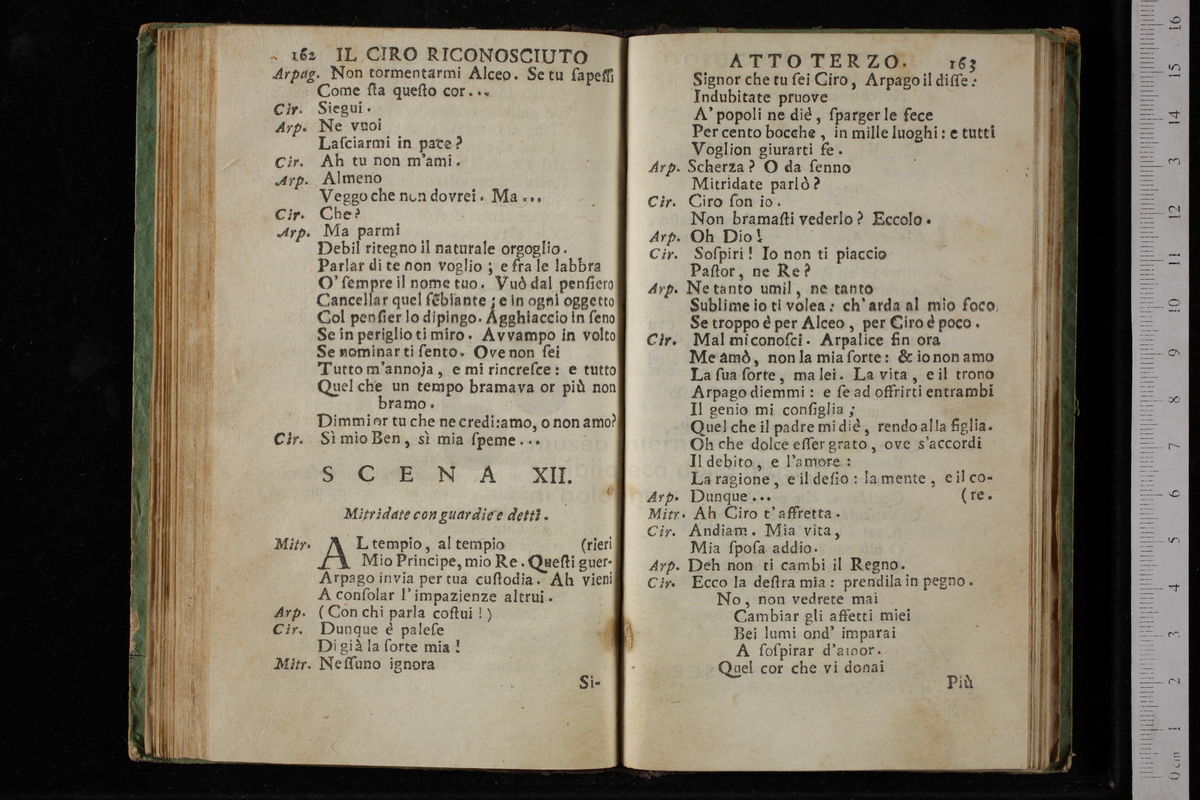 162 IL CIRO RICONOSCIUTO
Arpag. Non tormentarmi Alceo. Se tu ſapeſſi
Come ſta queſto cor...
Cir. Siegui.
Arp. Ne vuoi
Laſciarmi in pace?
Cir. Ah tu non m'ami.
Arp. Almeno
Veggo che non dovrei. Ma...
Cir. Che?
Arp. Ma parmi
Debil ritegno il naturale orgoglio.
Parlar di te non voglio; e fra le labbra
O' ſempre il nome tuo. Vuò dal penſiero
Cancellar quel sẽbiante; e in ogni oggetto
Col penſier lo dipingo. Agghiaccio in ſeno
Se in periglio ti miro. Avvampo in volto
Se nominar ti ſento. Ove non ſei
Tutto m'annoja, e mi rincreſce: e tutto
Quel che un tempo bramava or più non
bramo.
Dimmi or tu che ne credi: amo, o non amo?
Cir. Sì mio Ben, sì mia ſpeme...
SCENA XII.
Mitridate con guardie e detti.
Mitr. AL tempio, al tempio (rieri
Mio Principe, mio Re. Queſti guer-
Arpago invia per tua cuſtodia. Ah vieni
A conſolar l'impazienze altrui.
Arp. (Con chi parla coſtui!)
Cir. Dunque è paleſe
Di già la ſorte mia!
Mitr. Neſſuno ignora
Si-
ATTO TERZO. 163
Signor che tu ſei Ciro, Arpago il diſſe:
Indubitate pruove
A' popoli ne diè, ſparger le fece
Per cento bocche, in mille luoghi: e tutti
Voglion giurarti fe.
Arp. Scherza? O da ſenno
Mitridate parlò?
Cir. Ciro ſon io.
Non bramaſti vederlo? Eccolo.
Arp. Oh Dio!
Cir. Soſpiri! Io non ti piaccio
Paſtor, ne Re?
Arp. Ne tanto umil, ne tanto
Sublime io ti volea: ch'arda al mio foco
Se troppo è per Alceo, per Ciro è poco.
Cir. Mal mi conoſci. Arpalice fin ora
Me amò, non la mia ſorte: & io non amo
La ſua ſorte, ma lei. La vita, e il trono
Arpago diemmi: e ſe ad offrirti entrambi
Il genio mi conſiglia;
Quel che il padre mi diè, rendo alla figlia.
Oh che dolce eſſer grato, ove s'accordi
Il debito, e l'amore:
La ragione, e il deſio: la mente, e il co-
Arp. Dunque... (re.
Mitr. Ah Ciro t'affretta.
Cir. Andiam. Mia vita,
Mia ſpoſa addio.
Arp. Deh non ti cambi il Regno.
Cir. Ecco la deſtra mia: prendila in pegno.
No, non vedrete mai
Cambiar gli affetti miei
Bei lumi ond' imparai
A ſoſpirar d'amor.
Quel cor che vi donai
Più